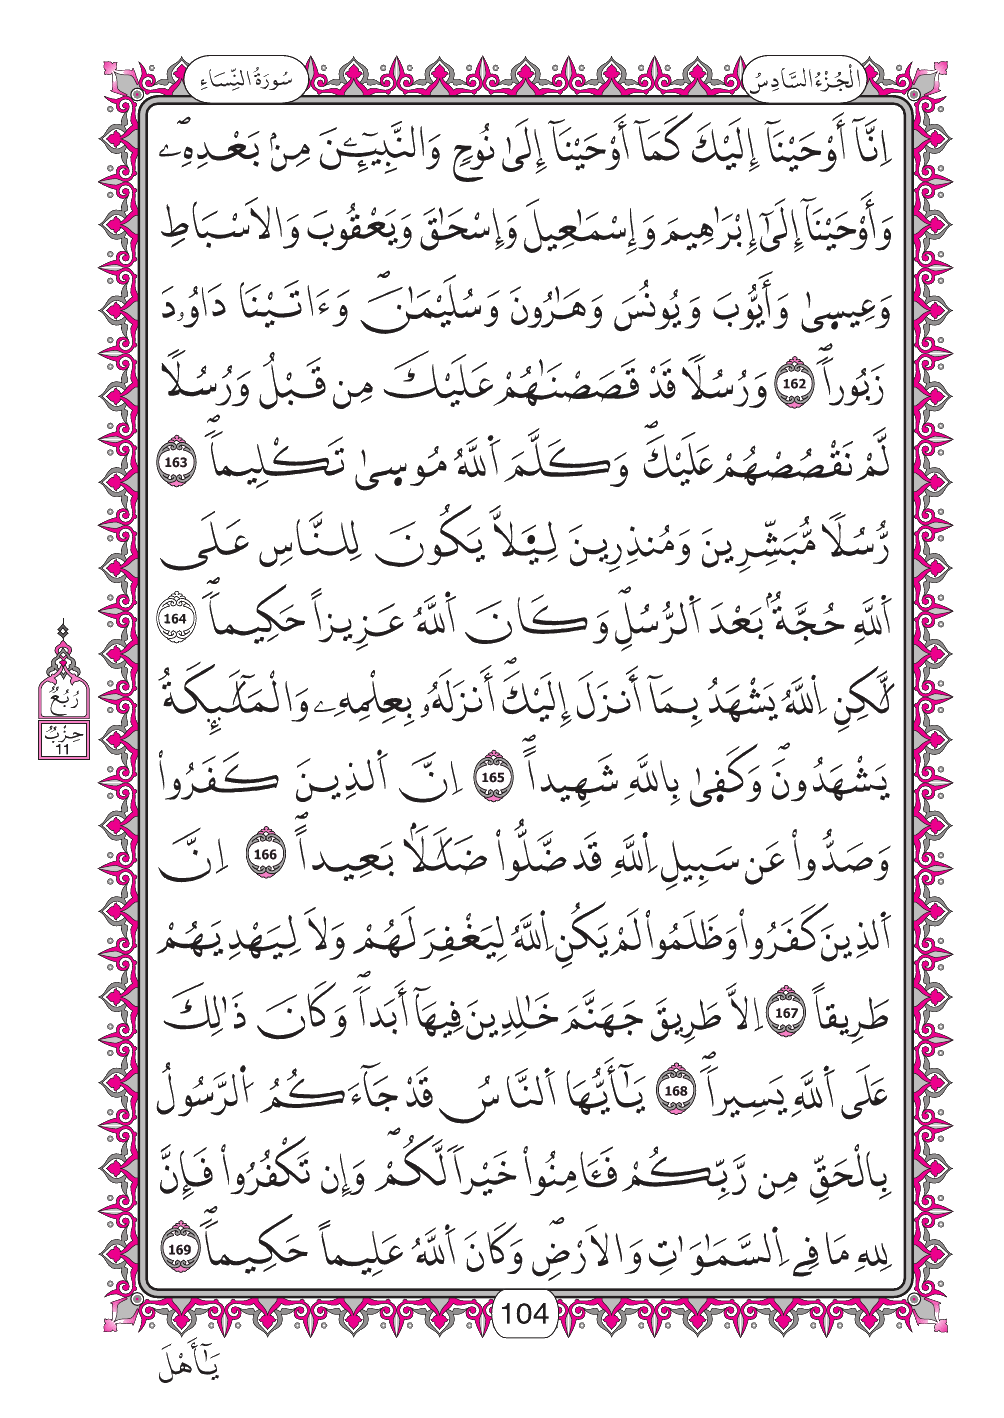 سُورَةُ النِّسَاءِ
الْجُزْءُ السَّادِسُ
اِنَّآ أَوْحَيْنَآ إِلَيْكَ كَمَآ أَوْحَيْنَآ إِلَىٰ نُوحٖ وَالنَّبِيٓـِٕۧنَ مِنۢ بَعْدِهِۦۖ
وَأَوْحَيْنَآ إِلَىٰٓ إِبْرَاهِيمَ وَإِسْمَاعِيلَ وَإِسْحَاقَ وَيَعْقُوبَ وَالاَسْبَاطِ
وَعِيسۭيٰ وَأَيُّوبَ وَيُونُسَ وَهَارُونَ وَسُلَيْمَانَۖ وَءَاتَيْنَا دَاوُۥدَ
زَبُوراٗۖ 162 وَرُسُلاٗ قَدْ قَصَصْنَاهُمْ عَلَيْكَ مِن قَبْلُ وَرُسُلاٗ
لَّمْ نَقْصُصْهُمْ عَلَيْكَۖ وَكَلَّمَ اَ۬للَّهُ مُوسۭيٰ تَكْلِيماٗۖ 163
رُّسُلاٗ مُّبَشِّرِينَ وَمُنذِرِينَ لِيَ۬لاَّ يَكُونَ لِلنَّاسِ عَلَى
اَ۬للَّهِ حُجَّةُۢ بَعْدَ اَ۬لرُّسُلِۖ وَكَانَ اَ۬للَّهُ عَزِيزاً حَكِيماٗۖ 164
لَّٰكِنِ اِ۬للَّهُ يَشْهَدُ بِمَآ أَنزَلَ إِلَيْكَۖ أَنزَلَهُۥ بِعِلْمِهِۦ وَالْمَلَٰٓئِكَةُ
يَشْهَدُونَۖ وَكَفۭيٰ بِاللَّهِ شَهِيداًۖ 165 اِنَّ اَ۬لذِينَ كَفَرُواْ
وَصَدُّواْ عَن سَبِيلِ اِ۬للَّهِ قَد ضَّلُّواْ ضَلَٰلاَۢ بَعِيداًۖ 166 اِنَّ
اَ۬لذِينَ كَفَرُواْ وَظَلَمُواْ لَمْ يَكُنِ اِ۬للَّهُ لِيَغْفِرَ لَهُمْ وَلاَ لِيَهْدِيَهُمْ
طَرِيقاً 167 اِلاَّ طَرِيقَ جَهَنَّمَ خَالِدِينَ فِيهَآ أَبَداٗۖ وَكَانَ ذَالِكَ
عَلَى اَ۬للَّهِ يَسِيراٗۖ 168 يَٰٓأَيُّهَا اَ۬لنَّاسُ قَدْ جَآءَكُمُ اُ۬لرَّسُولُ
بِالْحَقِّ مِن رَّبِّكُمْ فَـَٔامِنُواْ خَيْراٗ لَّكُمْۖ وَإِن تَكْفُرُواْ فَإِنَّ
لِلهِ مَا فِے اِ۬لسَّمَٰوَٰتِ وَالاَرْضِۖ وَكَانَ اَ۬للَّهُ عَلِيماً حَكِيماٗۖ 169
رُبُعُ
حِزْبُ
11
104
يَٰٓأَهْلَ